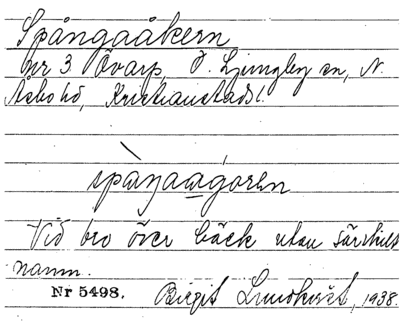 Spångaåkern
nr 3 Övarp, Ö. Ljungby sn, N.
Åsbo hd, Kristianstads l.
Vid bro över bäck utan särskilt
namn.
Nr 5498. Birgit Lundkvist, 1938.